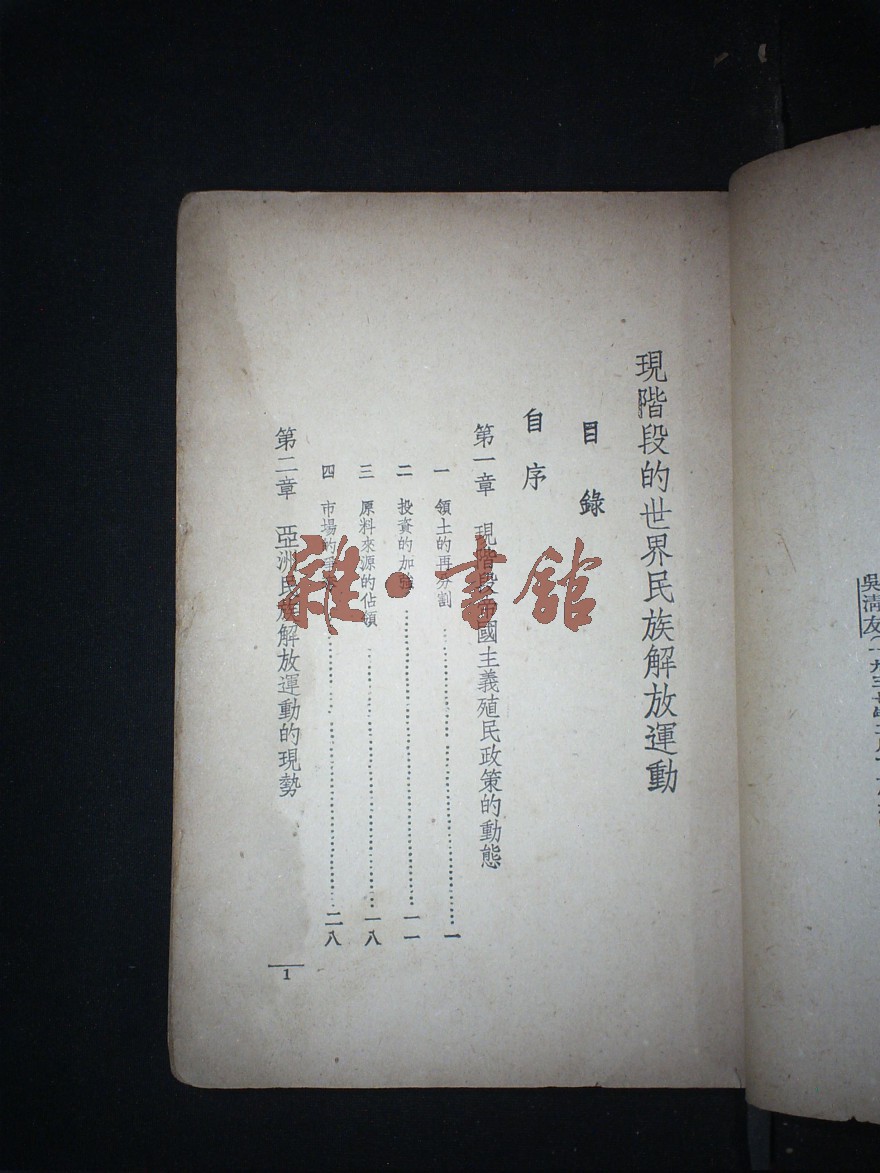 吳清友
現階段的世界民族解放運動
目錄
自序
第一章 現階段 國主義殖民政策的動態
一 領土的再分割 一
二 投資的加強 一一
三 原料來源的佔領 一八
四 市場的 二八
第二章 亞洲民族解放運動的現勢
1
雜·書館